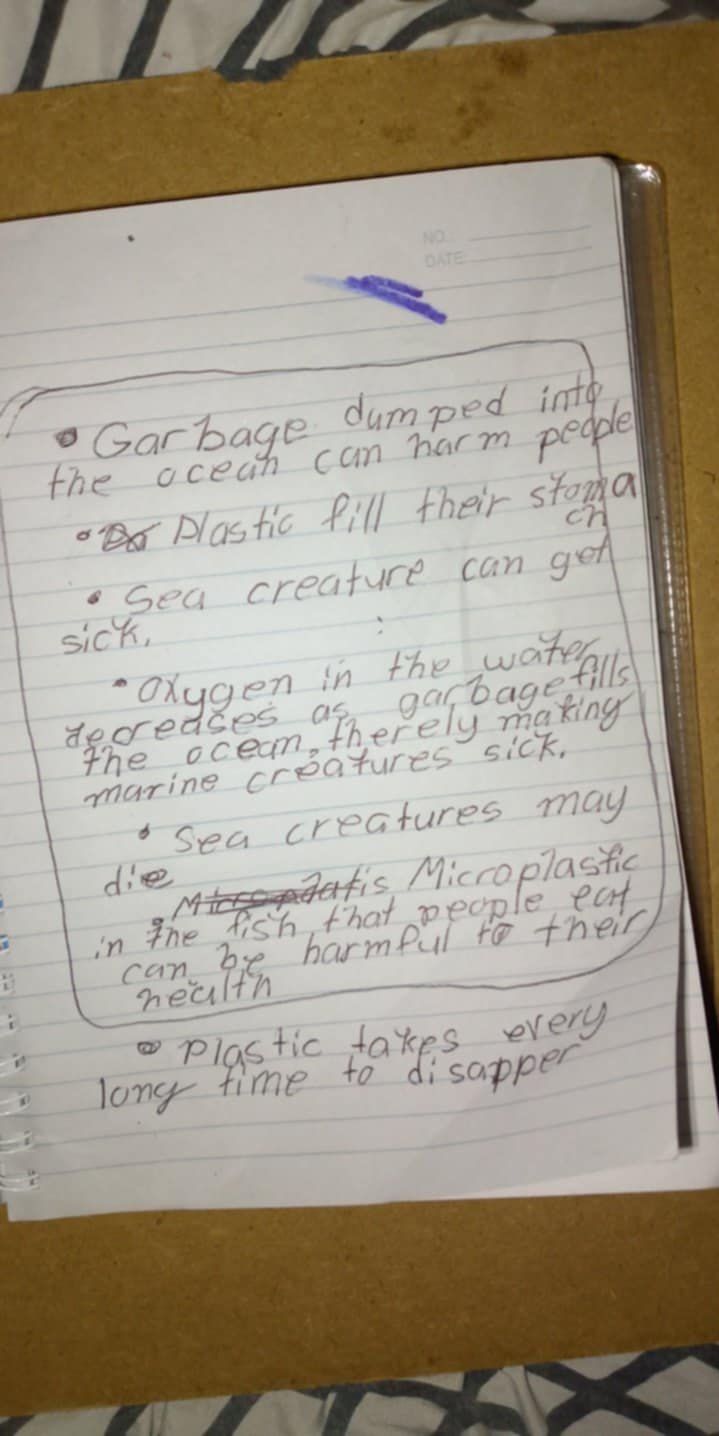 NO.:
DATE:
• Garbage dumped into
the ocean can harm people
• Plastic fill their stoma
ch
• Sea creature can get
sick.
• Oxygen in the water
decreases as garbage fills
the ocean, therely making
marine creatures sick.
• Sea creatures may
die
• Microplastic
in the fish that people eat
can be harmful to their
health
• Plastic takes every
long time to disapper